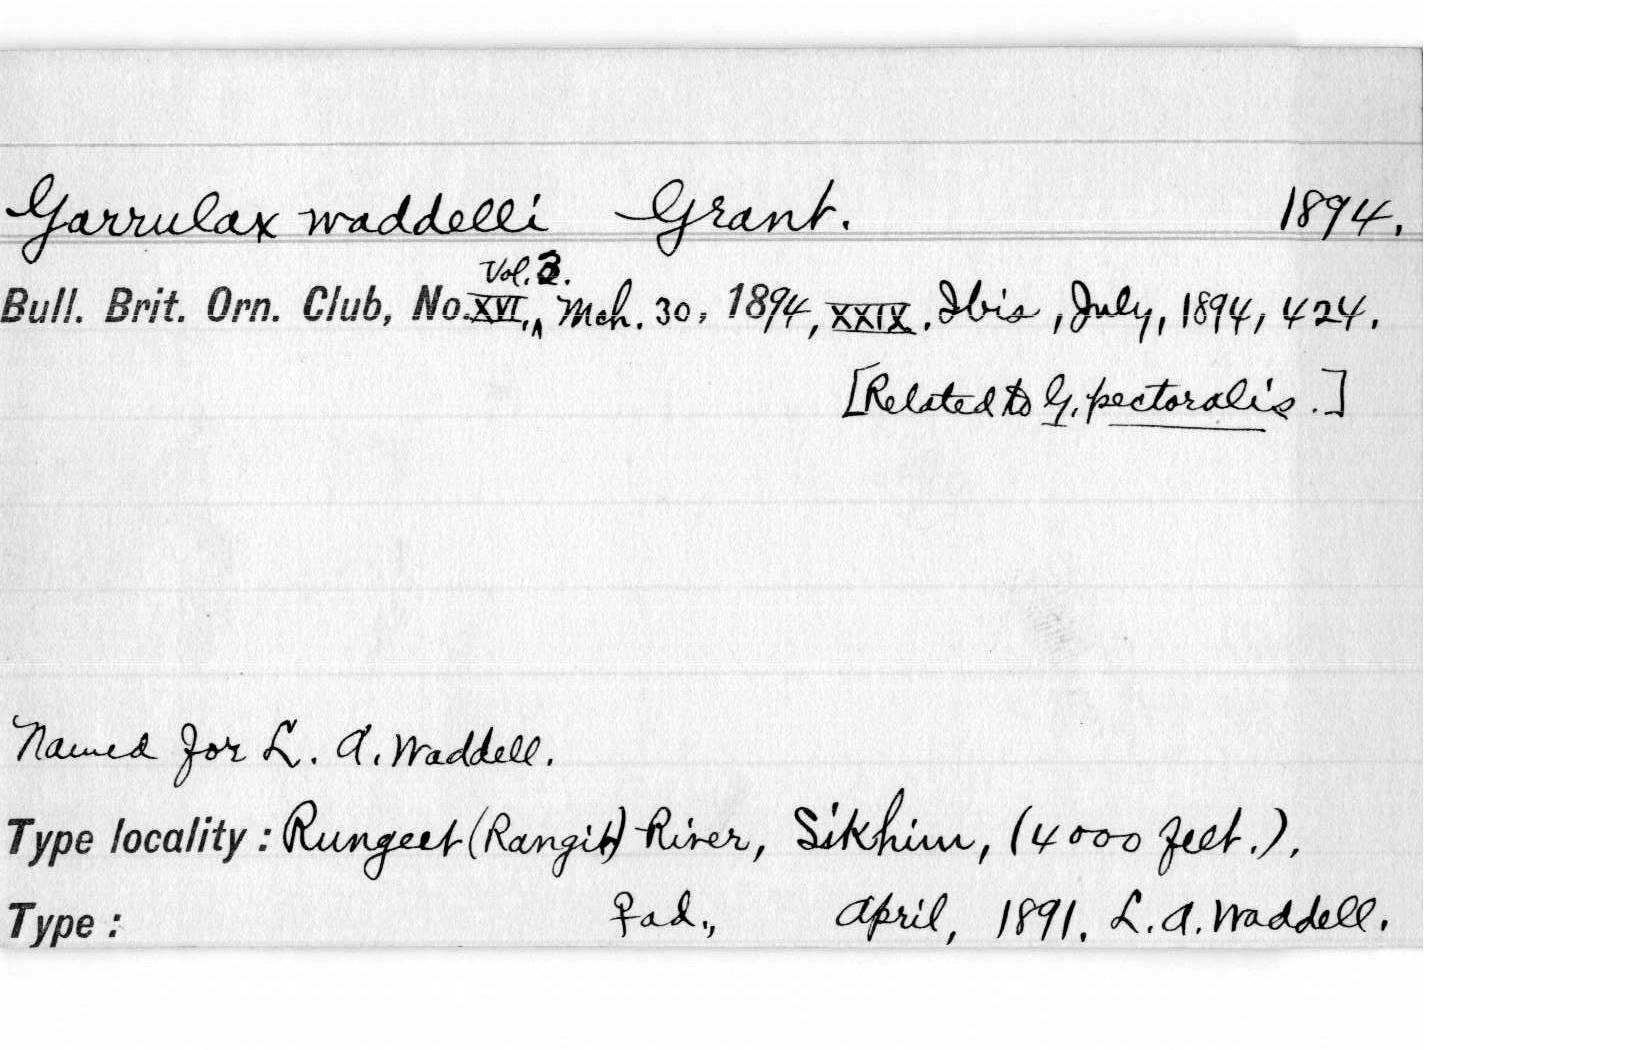 Garrulax waddelli Grant. 1894.
Vol. 3.
Bull. Brit. Orn. Club, No. XVI, ^ Mch. 30, 1894, XXIX. Ibis, July, 1894, 424.
[Related to G. pectoralis.]
Named for L. A. Waddell.
Type locality: Rungeet (Rangit) River, Sikhim, (4000 feet.).
Type: ♀ ad., April, 1891. L. A. Waddell.